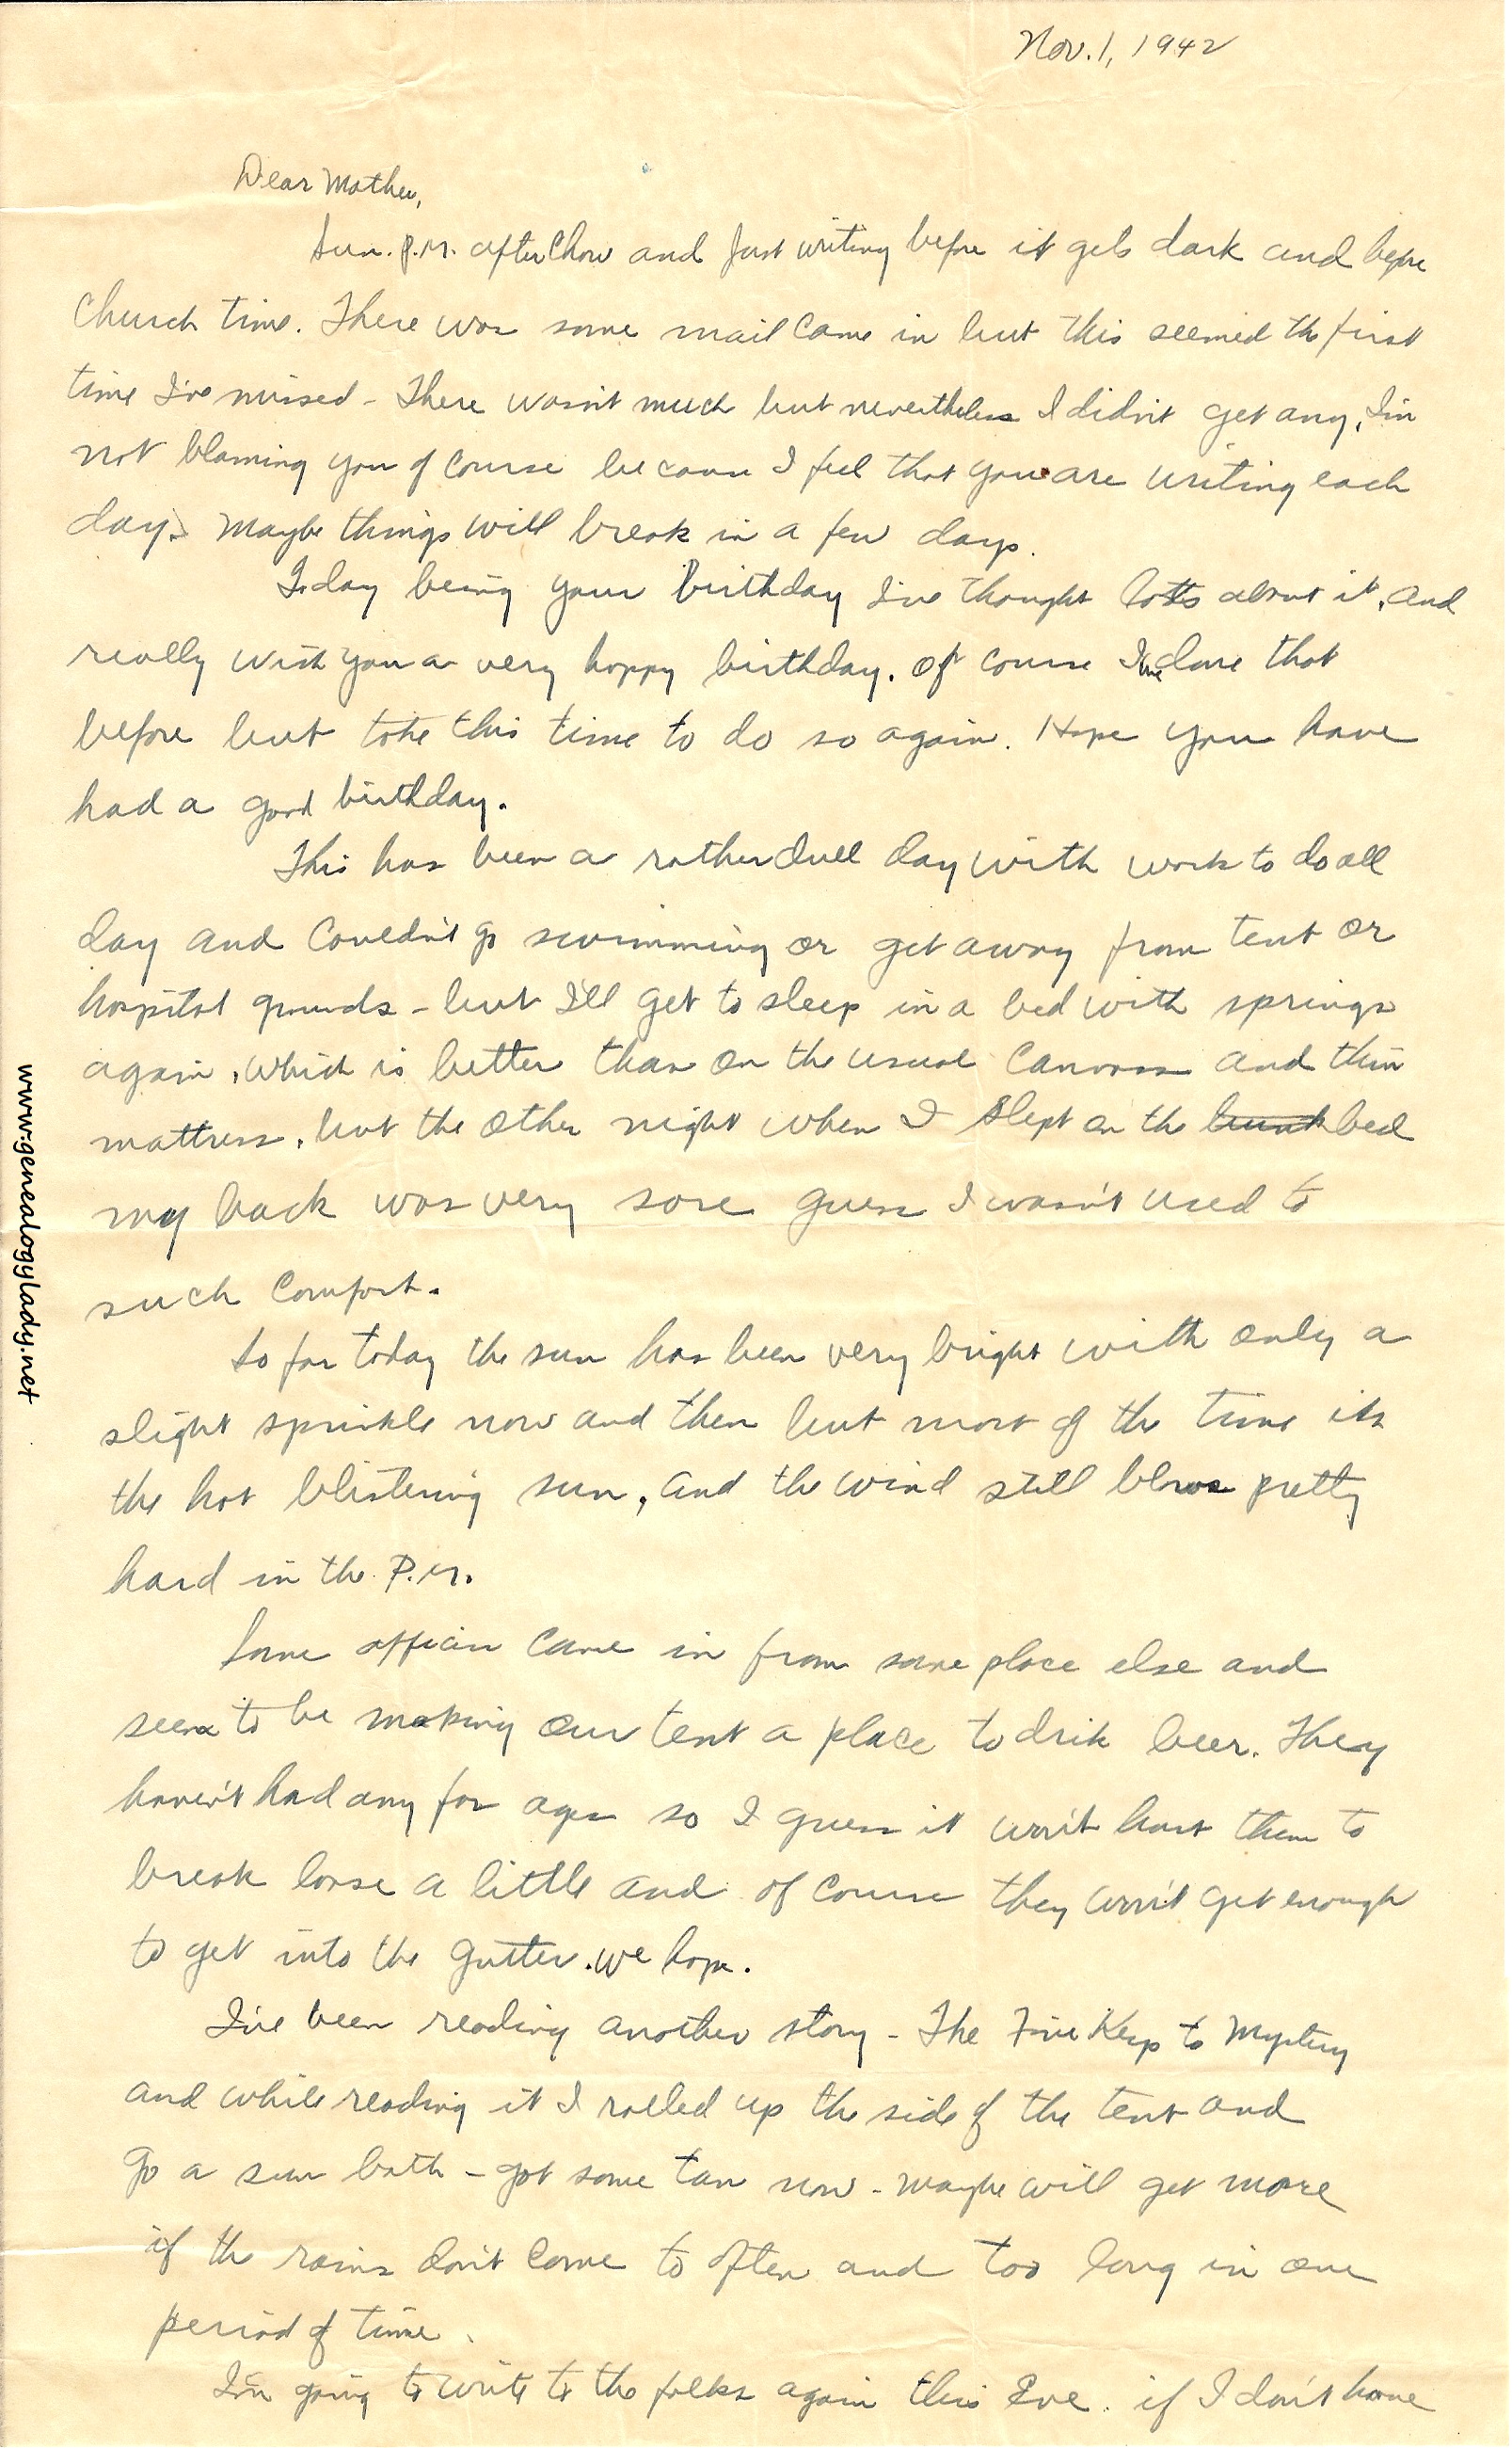 Nov. 1, 1942
Dear Mother,
Sun. P.M. after Chow and Just writing before it gets dark and before
Church time. There was some mail Came in but this seemed the first
time I've missed - There wasn't much but nevertheless I didn't get any, I'm
not blaming you of course because I feel that you are writing each
day. Maybe things will break in a few days.
Today being your birthday I've thought lotts about it, and
really wish you a very happy birthday. Of course I've done that
before but take this time to do so again. Hope you have
had a good birthday.
This has been a rather dull day with work to do all
day and Couldn't go swimming or get away from tent or
hospital grounds - but I'll get to sleep in a bed with springs
again, which is better than on the usual Canvass and thin
mattress, but the other night when I slept on the bunk bed
my back was very sore guess I wasn't used to
such Comfort.
So far today the sun has been very bright with only a
slight sprinkle now and then but most of the time its
the hot blistering sun, and the wind still blows pretty
hard in the P.M.
Some officers Came in from some place else and
seem to be making our tent a place to drik beer. They
haven't had any for ages so I guess it won't hurt them to
break loose a little and of course they won't get enough
to get into the gutter. we hope.
I've been reading another story - The Five Keys to Mystery
and while reading it I rolled up the side of the tent and
go a sun bath - got some tan now - maybe will get more
if the rains don't Come to often and too long in one
period of time.
I'm going to write to the folks again this Eve. if I don't have
www.genealogylady.net